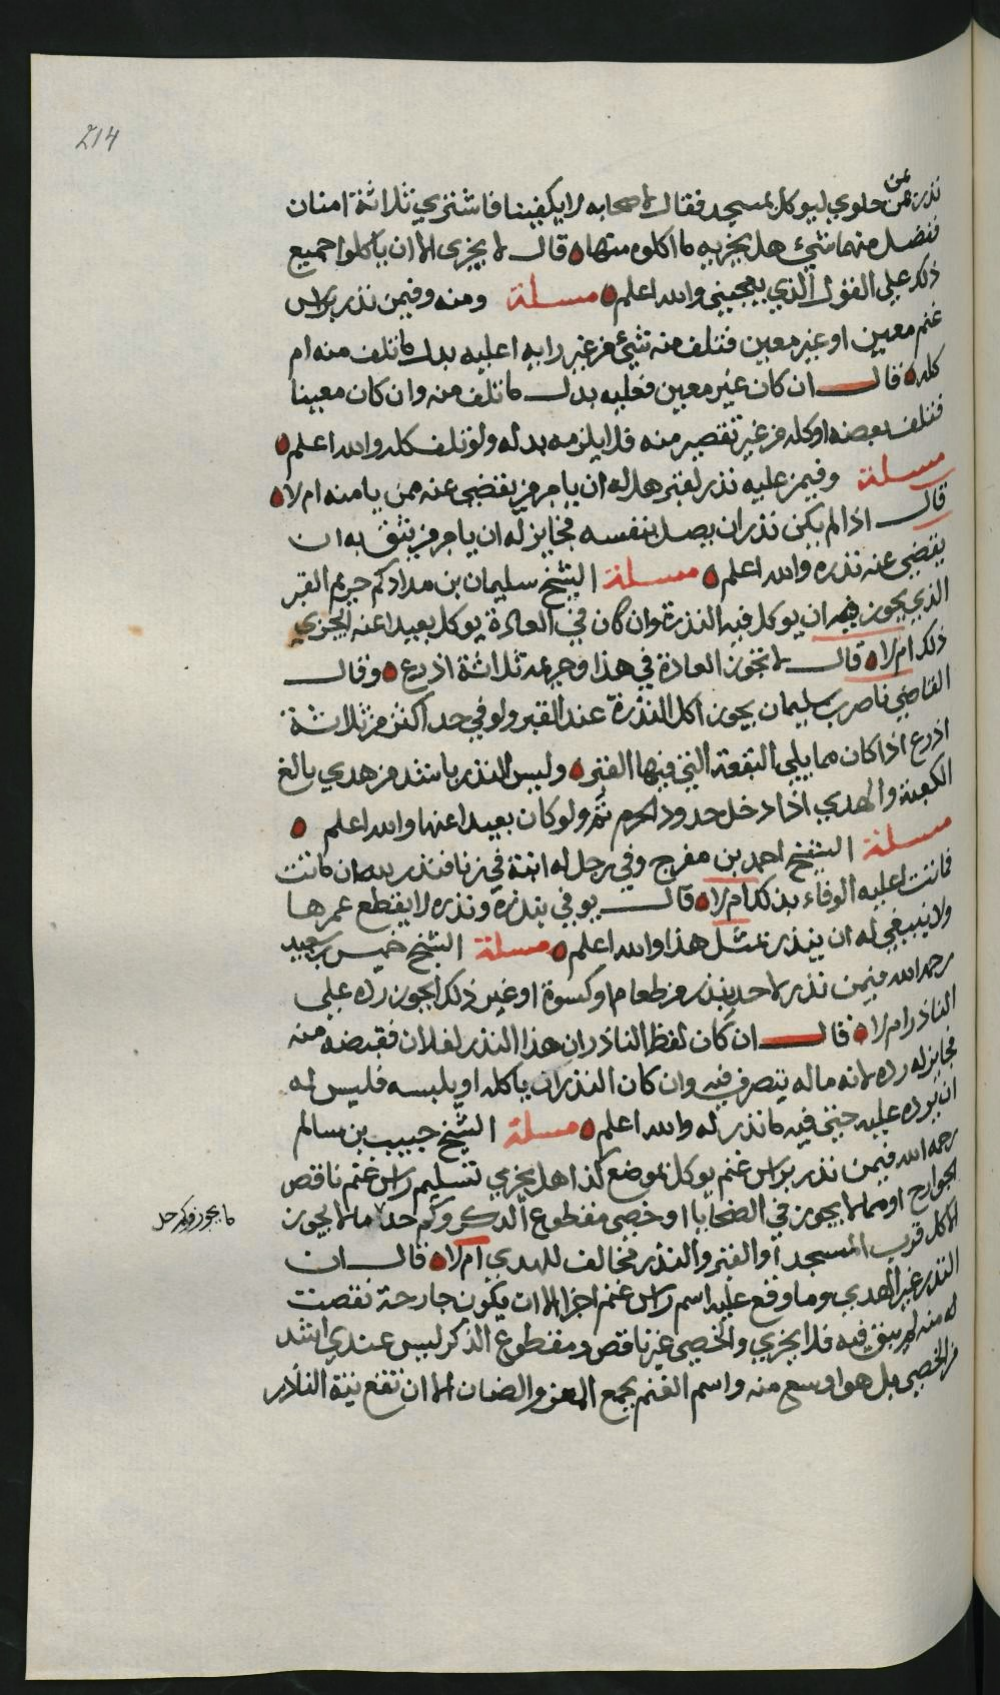 214
نذر بمن من حلوي ليوكل بمسجد فقال لاصحابه لا يكفينا فاشتري ثلاثة امنان
ففضل منهما شيء هل يجزيه ما اكلوه منها قال لا يجزى الا ان ياكلوا جميع
ذلك علي القول الذي يعجبني والله اعلم مسلة ومنه وفيمن نذر براس
غنم معين او غير معين فتلف منه شيء من غير رايه اعليه بدل ما تلف منه ام
كله قال ان كان غير معين فعليه بدل ما تلف منه وان كان معينا
فتلف بعضه او كله من غير تقصير منه فلا يلزمه بدله ولو تلف كله والله اعلم
مسلة وفيمن عليه نذر لقبر هل له ان يامر من يقضي عنه ممن يامنه ام لا
قال اذا لم يكن نذر ان يصل بنفسه فجايز له ان يامر من يثق به ان
يقضي عنه نذره والله اعلم مسلة الشيخ سليمان بن مداد كم حريم القبر
الذي يجوز فيه ان يوكل فيه النذرة وان كان في العادة يوكل بعيدا عنه ايجزي
ذلك ام لا قال لا تجوز العادة في هذا وحريمه ثلاثة اذرع وقال
القاضي ناصر بن سليمان يجوز اكل النذرة عند القبر ولو في حد اكثر من ثلاثة
اذرع اذا كان مما يلي البقعة التي فيها القبر وليس النذر باشد من هدي بالغ
الكعبة والهدي اذا دخل حدود الحرم تم ولو كان بعيدا عنها والله اعلم
مسلة الشيخ احمد بن مفرج وفي رجل له ابنة في زنا فنذر لله ان ماتت
فماتت اعليه الوفاء بذلك ام لا قال يوفي بنذره ونذره لا يقطع عمرها
ولا ينبغي له ان ينذر بمثل هذا والله اعلم مسلة الشيخ خميس بن سعيد
رحمه الله فيمن نذر لاحد بنذر من طعام او كسوة او غير ذلك ايجوز رده علي
الناذر ام لا قال ان كان لفظ الناذر ان هذا النذر لفلان فقبضه منه
فجايز له رده لانه ماله يتصرف فيه وان كان النذر ان ياكله او يلبسه فليس له
ان يرده عليه حتي فيه ما نذر له والله اعلم مسلة الشيخ حبيب بن سالم
رحمه الله فيمن نذر براس غنم يوكل بموضع كذا هل يجزي تسليم راس غنم ناقص
الجوارح او مما لا يجوز في الضحايا او خصي مقطوع الذكر وكم حد ما لا يجوز
ما يجوز وكم حل
الاكل قرب المسجد او القبر والنذر مخالف للهدي ام لا قال ان
النذر غير الهدي وما وقع عليه اسم راس غنم اجزا الا ان يكون جارحة نقصت
له منه لم يبق فيه فلا يجزي والخصي غير ناقص ومقطوع الذكر ليس عندي اشد
من الخصي بل هو اوسع منه واسم الغنم يجمع المعز والضان الا ان تقع نية الناذر